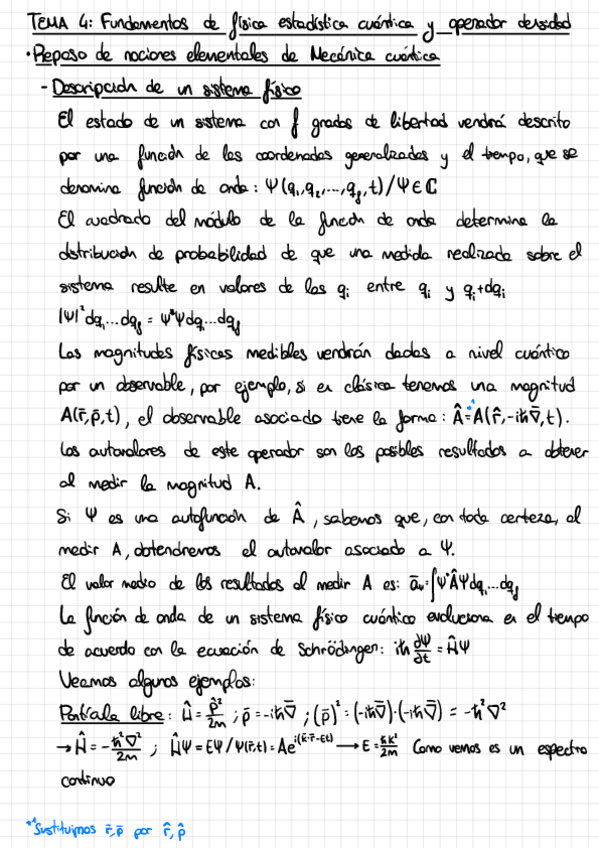 TEMA 4: Fundamentos de física estadística cuántica y operador densidad
· Repaso de nociones elementales de Mecánica cuántica
- Descripción de un sistema físico
El estado de un sistema con f grados de libertad vendrá descrito
por una función de las coordenadas generalizadas y el tiempo, que se
denomina función de onda: Ψ(q₁,q₂,...,q_f,t) / Ψ∈ℂ
El cuadrado del módulo de la función de onda determina la
distribución de probabilidad de que una medida realizada sobre el
sistema resulte en valores de las qᵢ entre qᵢ y qᵢ+dqᵢ
|Ψ|² dq₁...dq_f = Ψ*Ψ dq₁...dq_f
Las magnitudes físicas medibles vendrán dadas a nivel cuántico
por un observable, por ejemplo, si en clásica tenemos una magnitud
A(r̄,p̄,t), el observable asociado tiene la forma: Â =*¹ A(r̂,-iħ∇̄,t).
Los autovalores de este operador son los posibles resultados a obtener
al medir la magnitud A.
Si Ψ es una autofunción de Â, sabemos que, con toda certeza, al
medir A, obtendremos el autovalor asociado a Ψ.
El valor medio de los resultados al medir A es: ā_Ψ = ∫Ψ*ÂΨ dq₁...dq_f
La función de onda de un sistema físico cuántico evoluciona en el tiempo
de acuerdo con la ecuación de Schrödinger: iħ ∂Ψ/∂t = ĤΨ
Veamos algunos ejemplos:
Partícula libre: Ĥ = p̂²/2m ; p̄ = -iħ∇̄ ; (p̄)² = (-iħ∇̄)·(-iħ∇̄) = -ħ²∇²
→ Ĥ = -ħ²∇²/2m ; ĤΨ = EΨ / Ψ(r̄,t) = Ae^i(k̄·r̄-Et) → E = ħk²/2m Como vemos es un espectro
continuo
*¹ Sustituimos r̄,p̄ por r̂,p̂